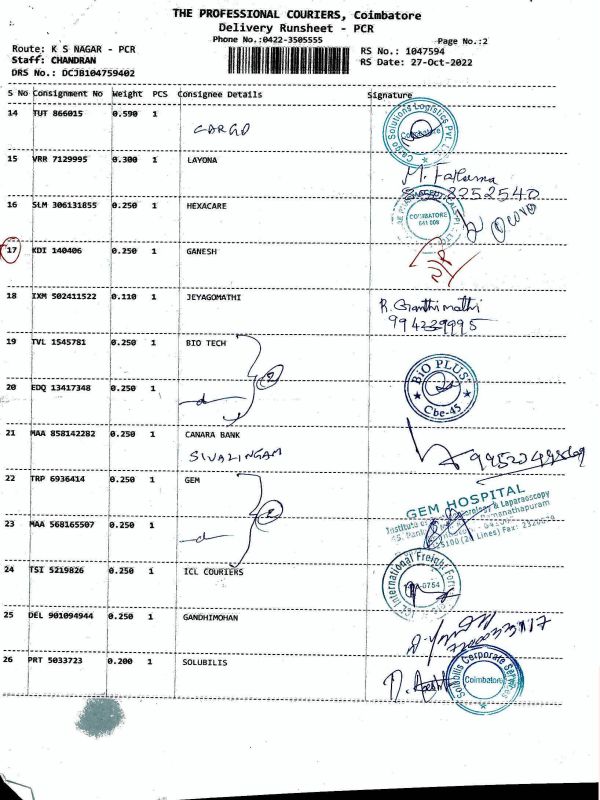 THE PROFESSIONAL COURIERS, Coimbatore
Delivery Runsheet - PCR
Phone No.:0422-3505555
Page No.:2
Route: K S NAGAR - PCR
RS No.: 1047594
Staff: CHANDRAN
RS Date: 27-Oct-2022
DRS No.: DCJB104759402
S No Consignment No Weight PCS Consignee Details Signature
14 TUT 866015 0.590 1
CARGO
Cargo Solutions Logistics Pvt. L
Coimbatore
15 VRR 7129995 0.300 1 LAYONA
M. Fathima
8252540
16 SLM 306131855 0.250 1 HEXACARE
COIMBATORE
641 009
17 KDI 140406 0.250 1 GANESH
18 IXM 502411522 0.110 1 JEYAGOMATHI
R. Gomthimathi
994239995
19 TVL 1545781 0.250 1 BIO TECH
BIO PLUS
Cbe-45
20 EDQ 13417348 0.250 1
21 MAA 858142282 0.250 1 CANARA BANK
SIVALINGAM
22 TRP 6936414 0.250 1 GEM
GEM HOSPITAL
Institute of & Laparaoscopy
Ramanathapuram
(20 Lines) Fax:
23 MAA 568165507 0.250 1
24 TSI 5219826 0.250 1 ICL COURIERS
International Freight Forw
25 DEL 901094944 0.250 1 GANDHIMOHAN
26 PRT 5033723 0.200 1 SOLUBILIS
Solubilis Corporate Services
Coimbatore